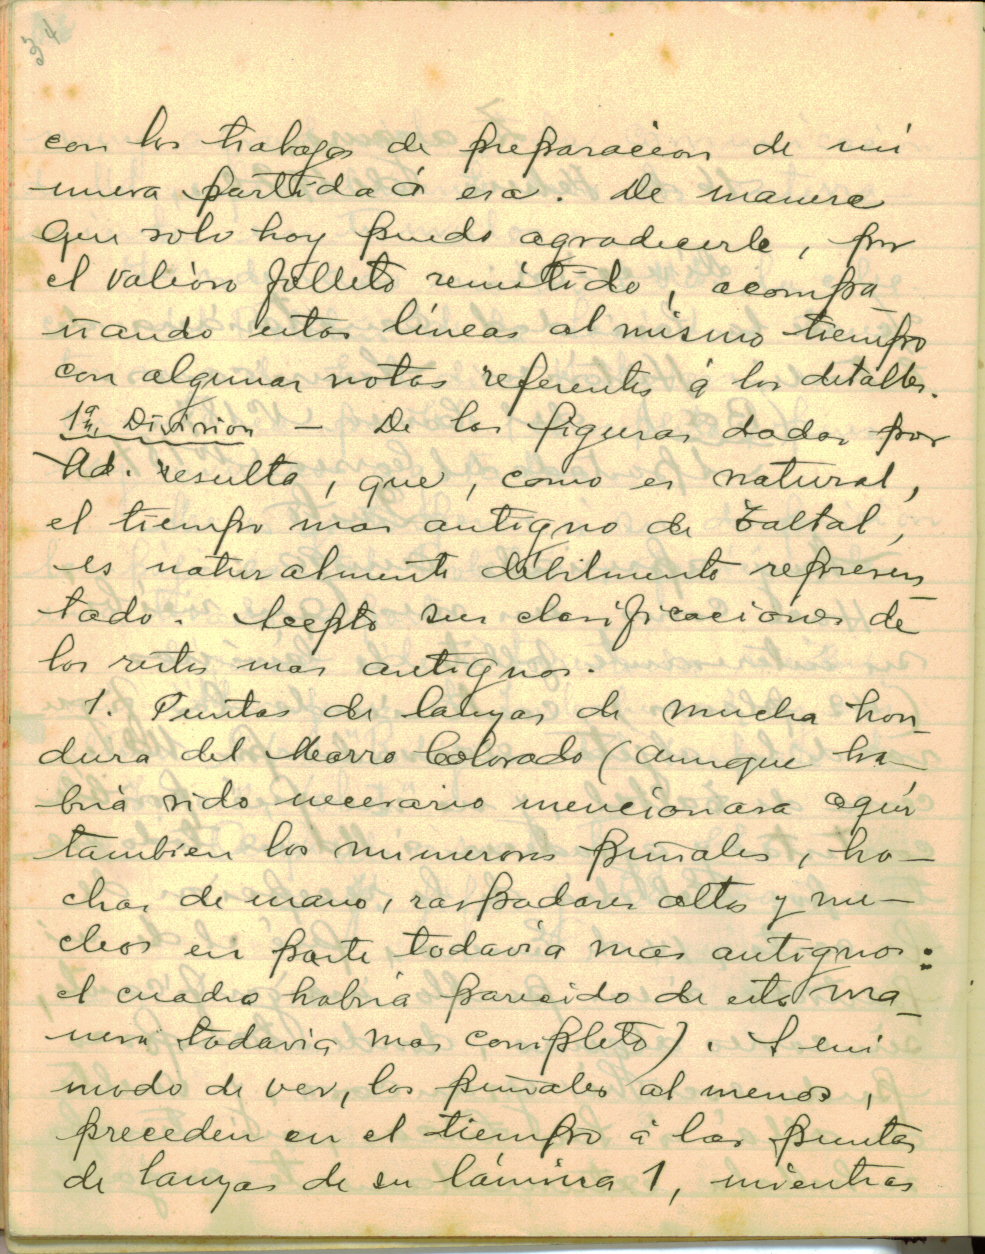 34
con los trabajos de preparacion de mi
nueva partida á esa. De manera
que solo hoy puedo agradecerle, por
el valioso folleto remitido, acompa
ñando estas líneas al mismo tiempo
con algunas notas referentes á los detalles.
1ª Division — De las figuras dadas por
Ud. resulta, que, como es natural,
el tiempo mas antiguo de Taltal,
es naturalmente débilmente represen
tado. Acepto sus clasificaciones de
los restos mas antiguos.
1. Puntas de lanzas de mucha hon_
dura del Morro Colorado (aunque ha_
bria sido necesario mencionara aqui
tambien los numerosos puñales, ha—
chas de mano, raspadores altos y nu—
cleos en parte todavia mas antiguos:
el cuadro habria parecido de esta ma_
nera todavia mas completo). A mi
modo de ver, los puñales al menos,
preceden en el tiempo á las puntas
de lanzas de su lámina 1, mientras